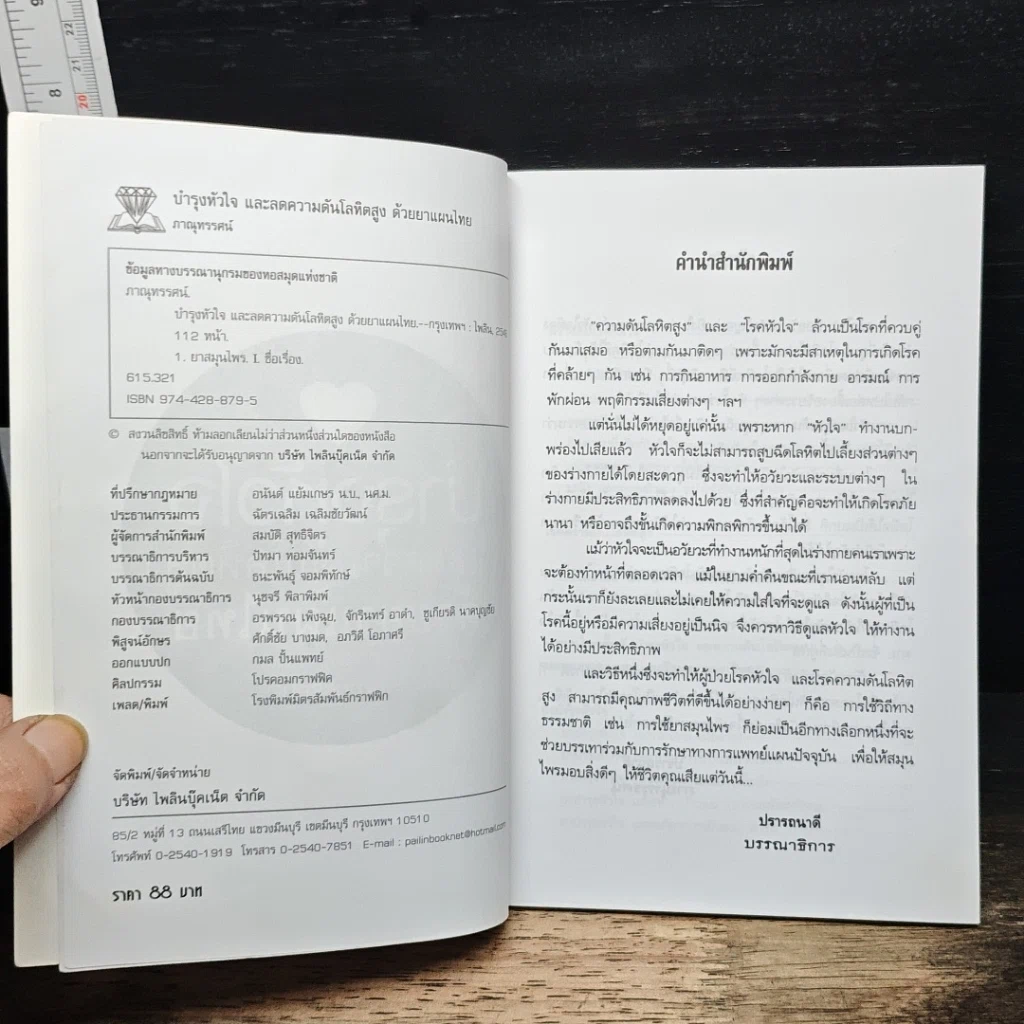 บำรุงหัวใจ และลดความดันโลหิตสูง ด้วยยาแผนไทย
ภาณุทรรศน์
ข้อมูลทางบรรณานุกรมของหอสมุดแห่งชาติ
ภาณุทรรศน์.
บำรุงหัวใจ และลดความดันโลหิตสูง ด้วยยาแผนไทย.--กรุงเทพฯ : ไพลิน,
112 หน้า.
1. ยาสมุนไพร. I. ชื่อเรื่อง.
615.321
ISBN 974-428-879-5
© สงวนลิขสิทธิ์ ห้ามลอกเลียนไม่ว่าส่วนหนึ่งส่วนใดของหนังสือ
นอกจากจะได้รับอนุญาตจาก บริษัท ไพลินบุ๊คเน็ต จำกัด
ที่ปรึกษากฎหมาย อนันต์ แย้มเกษร น.บ., นศ.ม.
ประธานกรรมการ ฉัตรเฉลิม เฉลิมชัยวัฒน์
ผู้จัดการสำนักพิมพ์ สมบัติ สุทธิจิตร
บรรณาธิการบริหาร ปัทมา หอมจันทร์
บรรณาธิการต้นฉบับ ธนะพันธุ์ จอมพิทักษ์
หัวหน้ากองบรรณาธิการ นุชจรี พิลาพิมพ์
กองบรรณาธิการ อรพรรณ เพ็งฉุย, จักรินทร์ อาดำ, ชูเกียรติ นาคบุญชัย
พิสูจน์อักษร ศักดิ์ชัย บางมด, อภวิดี โอภาศรี
ออกแบบปก กมล ปิ้นแพทย์
ศิลปกรรม โปรคอมกราฟฟิค
เพลต/พิมพ์ โรงพิมพ์มิตรสัมพันธ์กราฟฟิก
จัดพิมพ์/จัดจำหน่าย
บริษัท ไพลินบุ๊คเน็ต จำกัด
85/2 หมู่ที่ 13 ถนนเสรีไทย แขวงมีนบุรี เขตมีนบุรี กรุงเทพฯ 10510
โทรศัพท์ 0-2540-1919 โทรสาร 0-2540-7851 E-mail : pailinbooknet@hotmail.com
ราคา 88 บาท
คำนำสำนักพิมพ์
"ความดันโลหิตสูง" และ "โรคหัวใจ" ล้วนเป็นโรคที่ควบคู่
กันมาเสมอ หรือตามกันมาติดๆ เพราะมักจะมีสาเหตุในการเกิดโรค
ที่คล้ายๆ กัน เช่น การกินอาหาร การออกกำลังกาย อารมณ์ การ
พักผ่อน พฤติกรรมเสี่ยงต่างๆ ฯลฯ
แต่นั่นไม่ได้หยุดอยู่แค่นั้น เพราะหาก "หัวใจ" ทำงานบก-
พร่องไปเสียแล้ว หัวใจก็จะไม่สามารถสูบฉีดโลหิตไปเลี้ยงส่วนต่างๆ
ของร่างกายได้โดยสะดวก ซึ่งจะทำให้อวัยวะและระบบต่างๆ ใน
ร่างกายมีประสิทธิภาพลดลงไปด้วย ซึ่งที่สำคัญคือจะทำให้เกิดโรคภัย
นานา หรืออาจถึงขั้นเกิดความพิกลพิการขึ้นมาได้
แม้ว่าหัวใจจะเป็นอวัยวะที่ทำงานหนักที่สุดในร่างกายคนเราเพราะ
จะต้องทำหน้าที่ตลอดเวลา แม้ในยามค่ำคืนขณะที่เรานอนหลับ แต่
กระนั้นเราก็ยังละเลยและไม่เคยให้ความใส่ใจที่จะดูแล ดังนั้นผู้ที่เป็น
โรคนี้อยู่หรือมีความเสี่ยงอยู่เป็นนิจ จึงควรหาวิธีดูแลหัวใจ ให้ทำงาน
ได้อย่างมีประสิทธิภาพ
และวิธีหนึ่งซึ่งจะทำให้ผู้ป่วยโรคหัวใจ และโรคความดันโลหิต
สูง สามารถมีคุณภาพชีวิตที่ดีขึ้นได้อย่างง่ายๆ ก็คือ การใช้วิถีทาง
ธรรมชาติ เช่น การใช้ยาสมุนไพร ก็ย่อมเป็นอีกทางเลือกหนึ่งที่จะ
ช่วยบรรเทาร่วมกับการรักษาทางการแพทย์แผนปัจจุบัน เพื่อให้สมุน
ไพรมอบสิ่งดีๆ ให้ชีวิตคุณเสียแต่วันนี้...
ปรารถนาดี
บรรณาธิการ